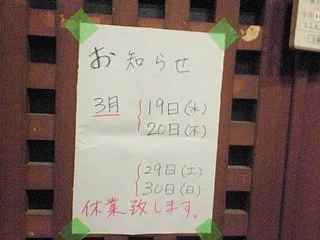 お知らせ
3月 19日(水)
20日(木)
29日(土)
30日(日)
休業致します。